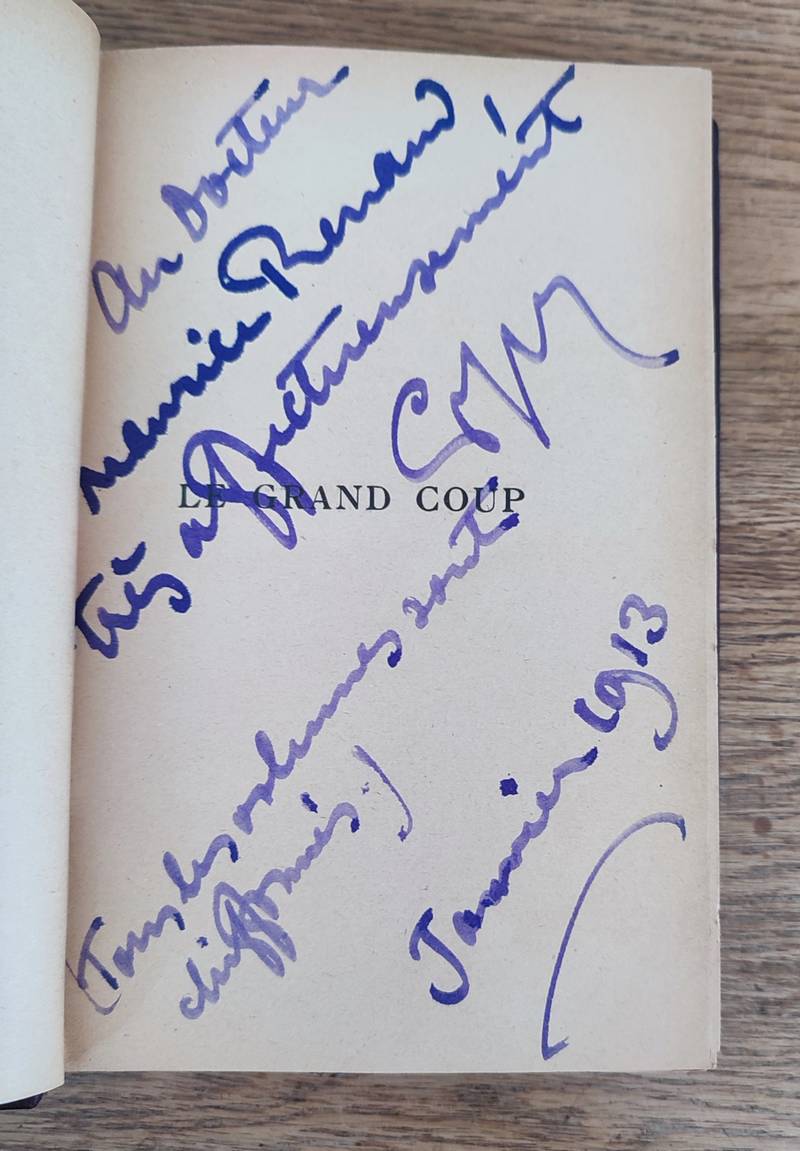 Au Docteur
Maurice Renaud,
très affectueusement
LE GRAND COUP
(Tous les volumes sont
chiffonnés.)
Janvier 1913